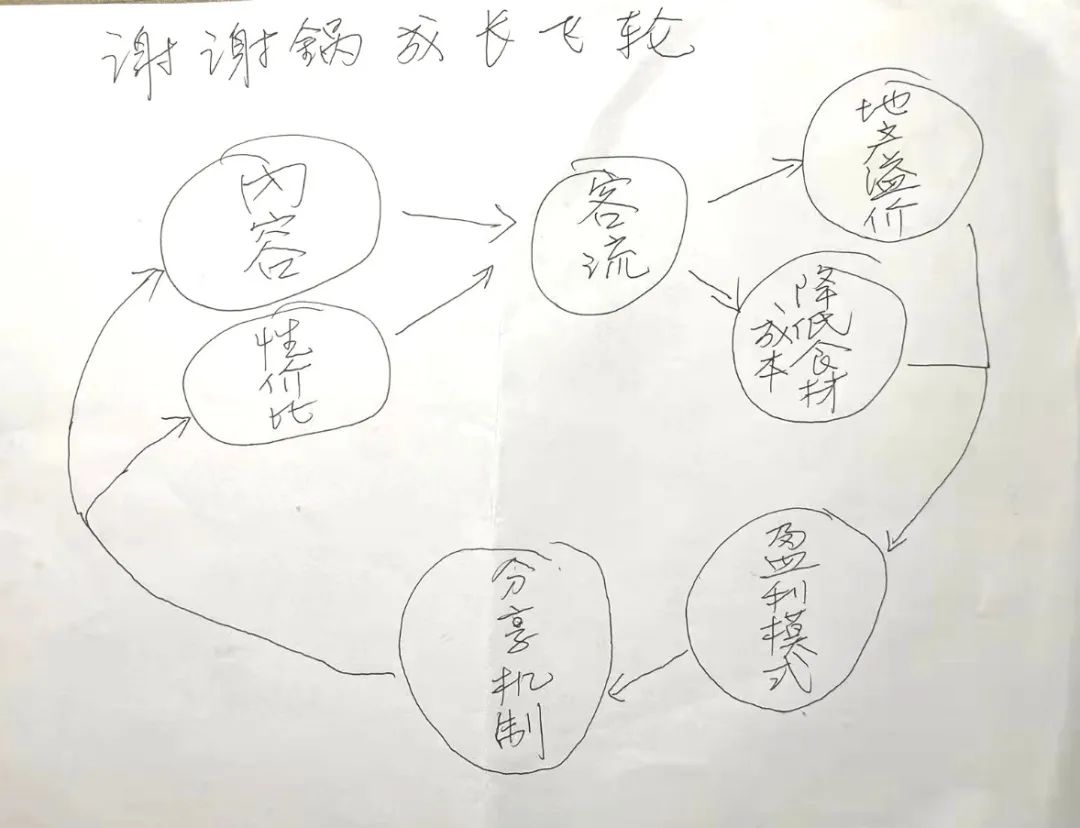 谢谢锅成长飞轮
内容
性价比
客流
地产溢价
降低食材
成本
盈利模式
分享机制